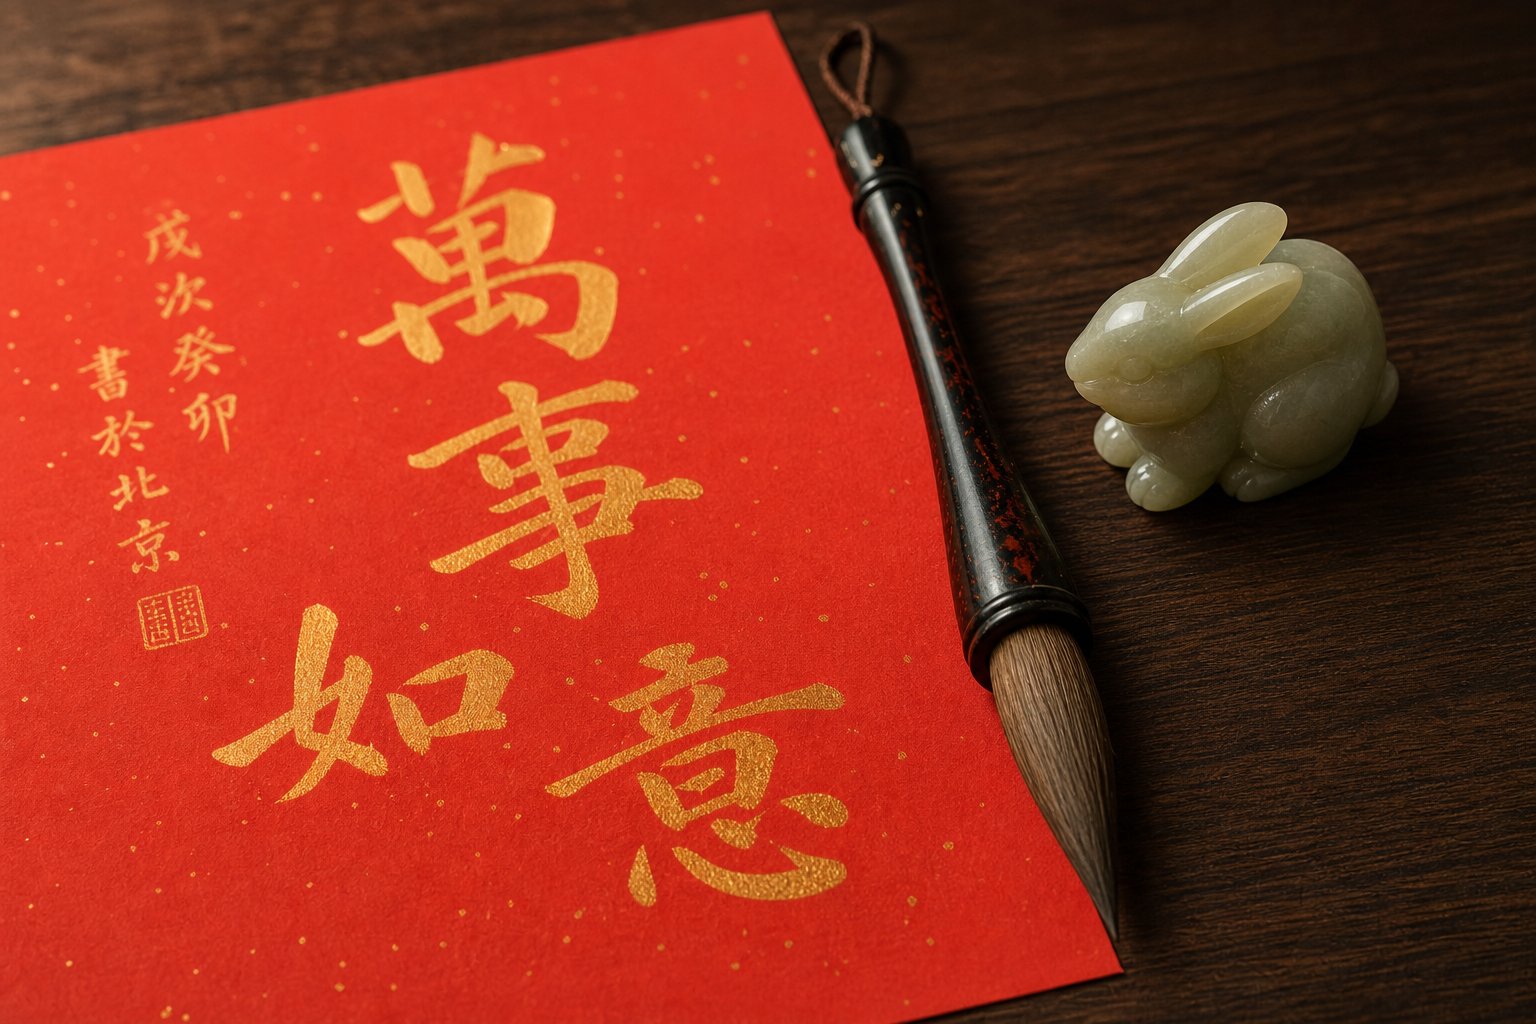 萬
事
如意
次癸卯
書於北京